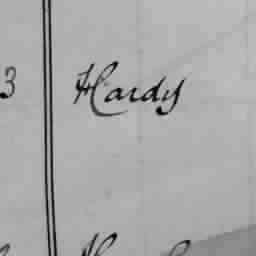 3 Hardy